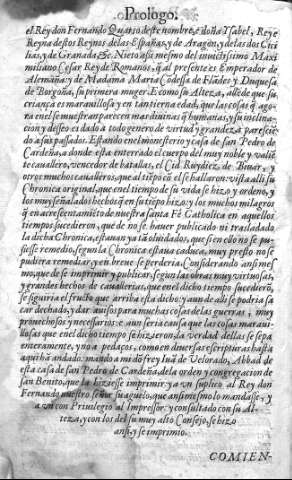 Prologo.
el Rey don Fernando Quarto deste nombre, e doña Ysabel, Rey e
Reyna destos Reynos de las Españas, y de Aragon, y de las dos Cici
lias, y de Granada &c. Nieto assi mesmo del inuictissimo Maxi
miliano Cesar Rey de Romanos, q̃ al presente es Emperador de
Alemaña: y de Madama Maria Códessa de Flãdes y Duquesa
de Borgoña, su primera muger. E como su Alteza, allẽde que su
criança es marauillosa y en tan tierna edad, que las cosas q̃ ago-
ra en el se muestran parecen mas diuinas q̃ humanas, y su inclina
cion y desseo es dado a todo genero de virtud y grandeza parescie
do a sus passados. Estando en el monesterio y casa de san Pedro de
Cardeña, a donde esta enterrado el cuerpo del muy noble y valiẽ
te cauallero, vencedor de batallas, el Cid Ruydiez de Biuar, y
otros muchos caualleros, que al tiẽpo cõ el se hallaron: vista alli su
Chronica original, que en el tiempo de su vida se hizo y ordeno, y
los muy señalados hechos q̃ en su tiẽpo hizo: y los muchos milagros
q̃ en acrescentamiẽto de nuestra santa Fé Catholica en aquellos
tiempos sucedieron, que de no se hauer publicado ni trasladado
la dicha Chronica, estauan ya tã oluidados, que si en ello no se pu-
siesse remedio, segun la Chronica estaua caduca, muy presto no se
pudiera remediar, y en breue se perderia. Considerando ansi mes
mo, que de se imprimir y publicar, segun las obras muy virtuosas,
y grandes hechos de cauallerias, que en el dicho tiempo sucedierõ,
se siguiria el fructo que arriba esta dicho: y aun de alli se podria sa
car dechado, y dar auisos para muchas cosas de las guerras, muy
prouechosos y necessarios: e aun seria causa que las cosas maraui-
llosas que en el dicho tiempo se hizieron, la verdad dellas se sepa
enteramente, y no a pedaços, como en diuersas escripturas hasta
aqui hã andado: mando a mi dõ frey Iuã de Velorado, Abbad de
esta casa de san Pedro de Cardeña, de la orden y congregacion de
san Benito, que la hiziesse imprimir: y a vn suplico al Rey don
Fernando nuestro señor su aguelo, que ansi mesmo lo mandasse, y
a vn con Priuilegio al Impressor: y consultado con su Al-
teza, y con los del su muy alto Consejo, se hizo
ansi, y se imprimio.
COMIEN-